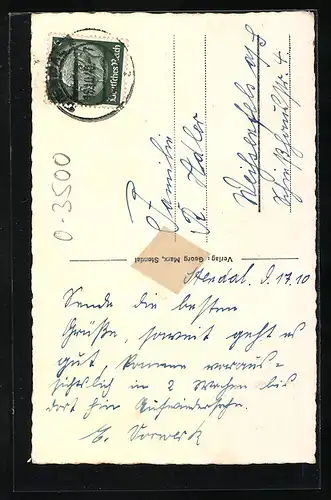 Deutsches Reich
0-3500
Familie
R. Adler
Weißenfels a/S
Schützenstr. 4.
Verlag: Georg Marx, Stendal
Stendal, d. 17.10
Sende die besten
Grüße, soweit geht es
gut, komme voraus=
sichtlich in 2 Wochen bis
dort hin Aufwiedersehn.
E. Vorwerk